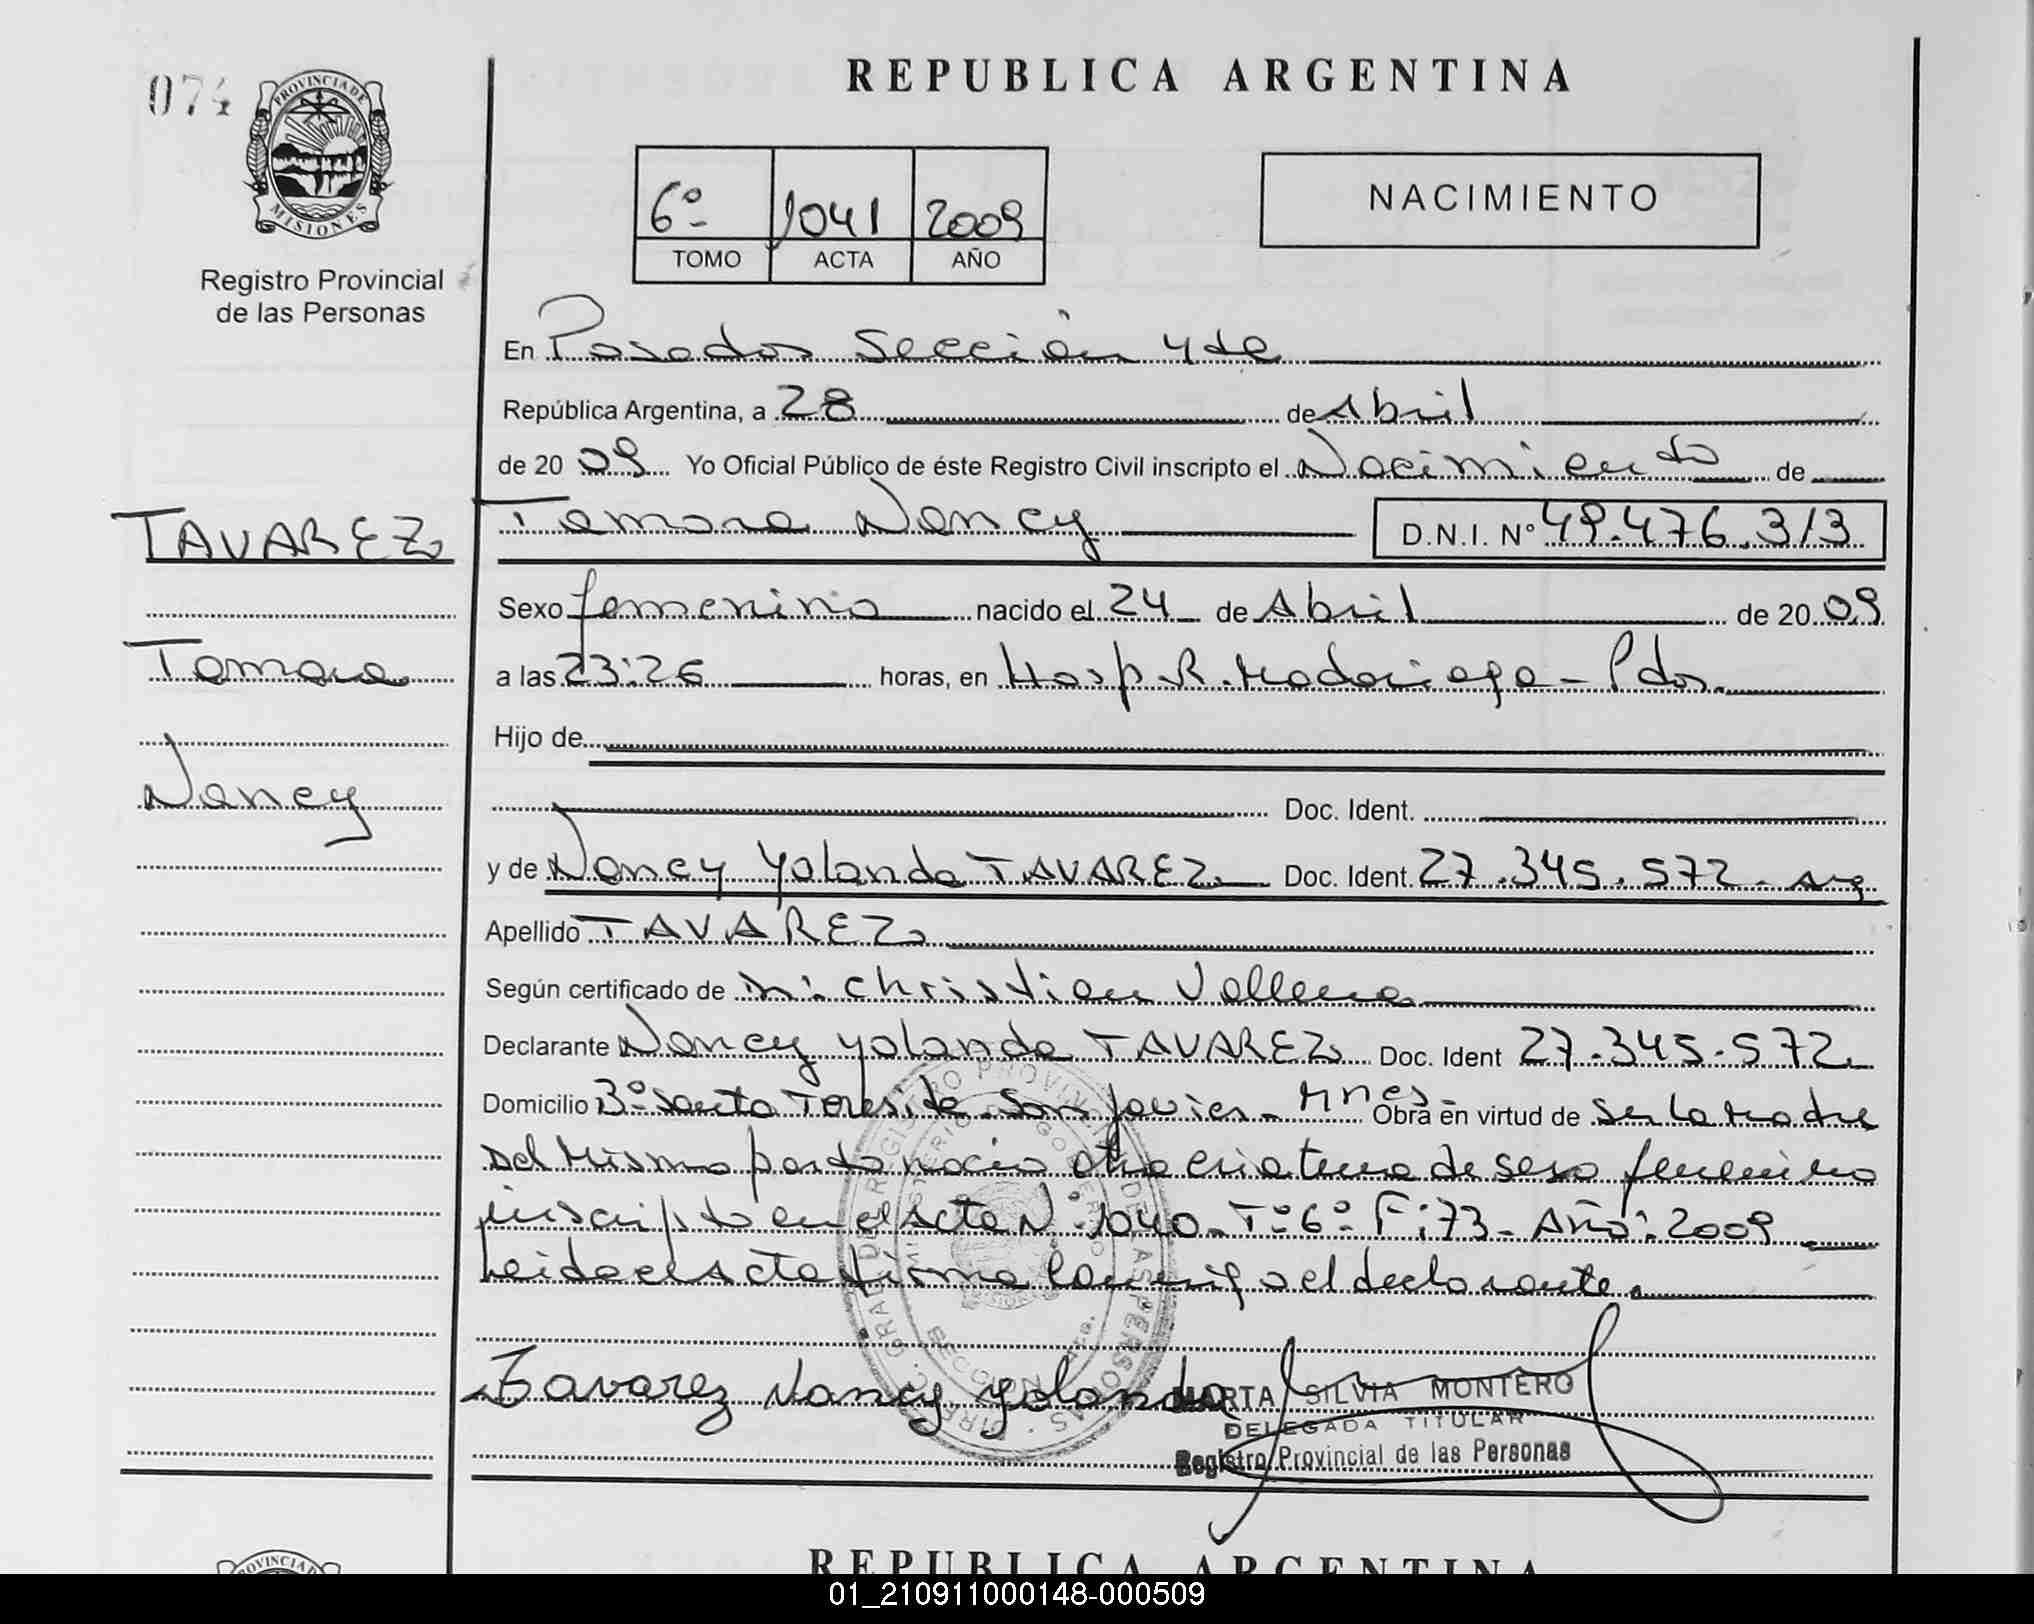 074
PROVINCIA DE
MISIONES
Registro Provincial
de las Personas
REPUBLICA ARGENTINA
6º 1041 2009
TOMO ACTA AÑO
NACIMIENTO
En Posadas Sección 4ta
República Argentina, a 28 de Abril
de 20 09 Yo Oficial Público de éste Registro Civil inscripto el Nacimiento de
TAVAREZ
Tamara Nancy D.N.I. Nº 49.476.313
Sexo femenino nacido el 24 de Abril de 20 09
Tamara
a las 23:26 horas, en Hosp. R. Madariaga - Pdas.
Hijo de
Nancy
Doc. Ident.
y de Nancy Yolanda TAVAREZ Doc. Ident. 27.345.572 - arg
Apellido TAVAREZ
Según certificado de Christian Vallena
Declarante Nancy Yolanda TAVAREZ Doc. Ident 27.345.572
Domicilio Bº Santa Teresita - San Javier - Mnes - Obra en virtud de ser la madre
del mismo parto nacio otra criatura de sexo femenino
inscripto en el acta Nº 1040 - Tº 6º F: 73 - Año: 2009
Leida el acta firma conmigo el declarante.
Tavarez Nancy Yolanda
MARTA SILVIA MONTERO
DELEGADA TITULAR
Registro Provincial de las Personas
PROVINCIA
REPUBLICA ARGENTINA
01_210911000148-000509